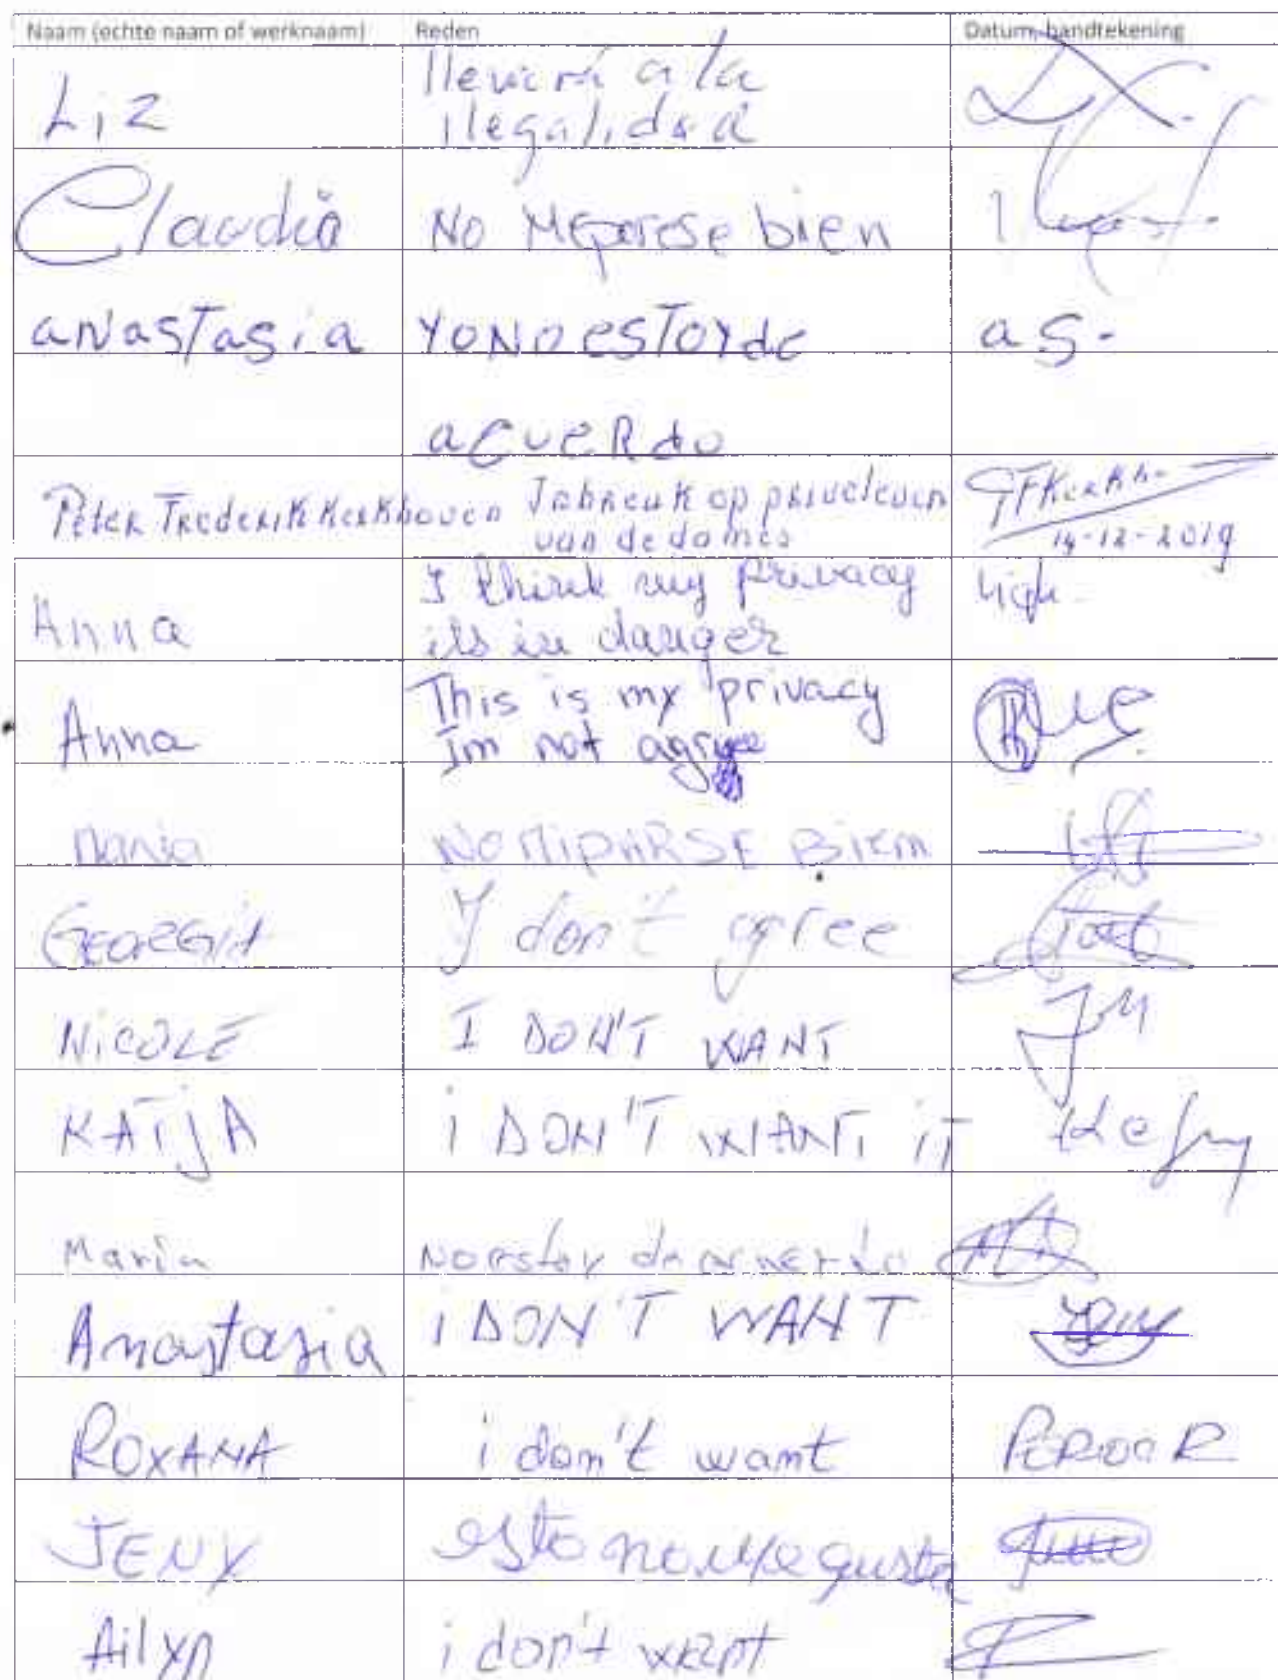 Naam (echte naam of werknaam) Reden Datum, handtekening
Liz llevara a la
ilegalidad
Claudia No Meparese bien
anastasia YO NO ESTOY de as.
acuerdo
Peter Frederik Kerkhoven Inbreuk op priveleven
van de dames 14-12-2019
Anna I think my privacy
its in danger
Anna This is my privacy
Im not agree
Maria NO MIPARSE BIEM
GEORGIA I don't agree
NICOLE I DON'T WANT
KATJA i DON'T WANT IT
Maria No estoy de acuerdo
Anastasia i DON'T WANT
ROXANA i don't want
JENY esto no me gusta
Ailyn i don't want